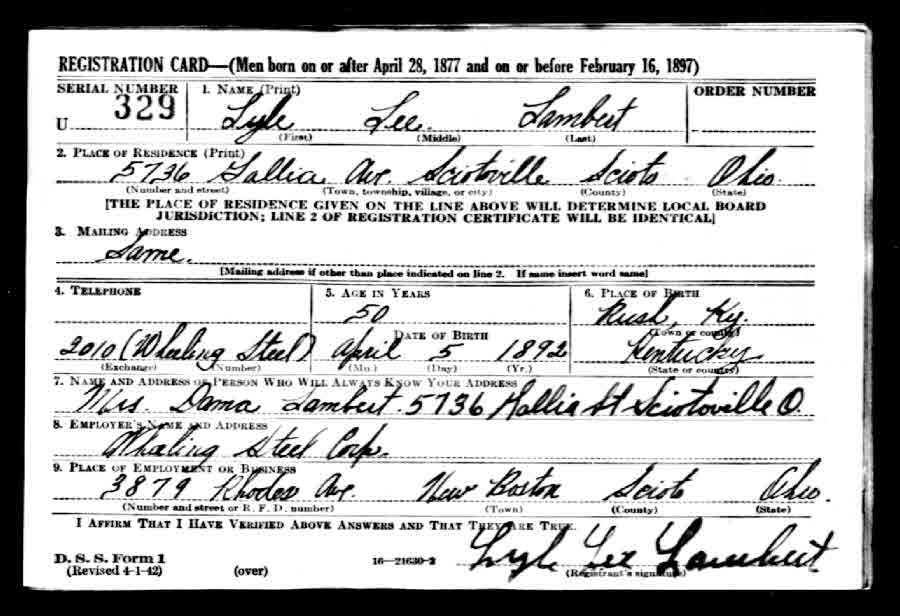 REGISTRATION CARD—(Men born on or after April 28, 1877 and on or before February 16, 1897)
SERIAL NUMBER 1. NAME (Print) ORDER NUMBER
U 329 Lyle Lee Lambert
(First) (Middle) (Last)
2. PLACE OF RESIDENCE (Print)
5736 Gallia Av. Sciotoville Scioto Ohio.
(Number and street) (Town, township, village, or city) (County) (State)
[THE PLACE OF RESIDENCE GIVEN ON THE LINE ABOVE WILL DETERMINE LOCAL BOARD
JURISDICTION; LINE 2 OF REGISTRATION CERTIFICATE WILL BE IDENTICAL]
3. MAILING ADDRESS
Same.
[Mailing address if other than place indicated on line 2. If same insert word same]
4. TELEPHONE 5. AGE IN YEARS 6. PLACE OF BIRTH
50 Rush, Ky.
DATE OF BIRTH (Town or county)
2010 (Wheeling Steel) April 5 1892 Kentucky
(Exchange) (Number) (Mo.) (Day) (Yr.) (State or country)
7. NAME AND ADDRESS OF PERSON WHO WILL ALWAYS KNOW YOUR ADDRESS
Mrs. Dama Lambert. 5736 Gallia St Sciotoville O.
8. EMPLOYER'S NAME AND ADDRESS
Wheeling Steel Corp.
9. PLACE OF EMPLOYMENT OR BUSINESS
3879 Rhodes Av. New Boston Scioto Ohio.
(Number and street or R. F. D. number) (Town) (County) (State)
I AFFIRM THAT I HAVE VERIFIED ABOVE ANSWERS AND THAT THEY ARE TRUE.
D. S. S. Form 1
(Revised 4-1-42) (over) 16—21630-2 Lyle Lee Lambert
(Registrant's signature)